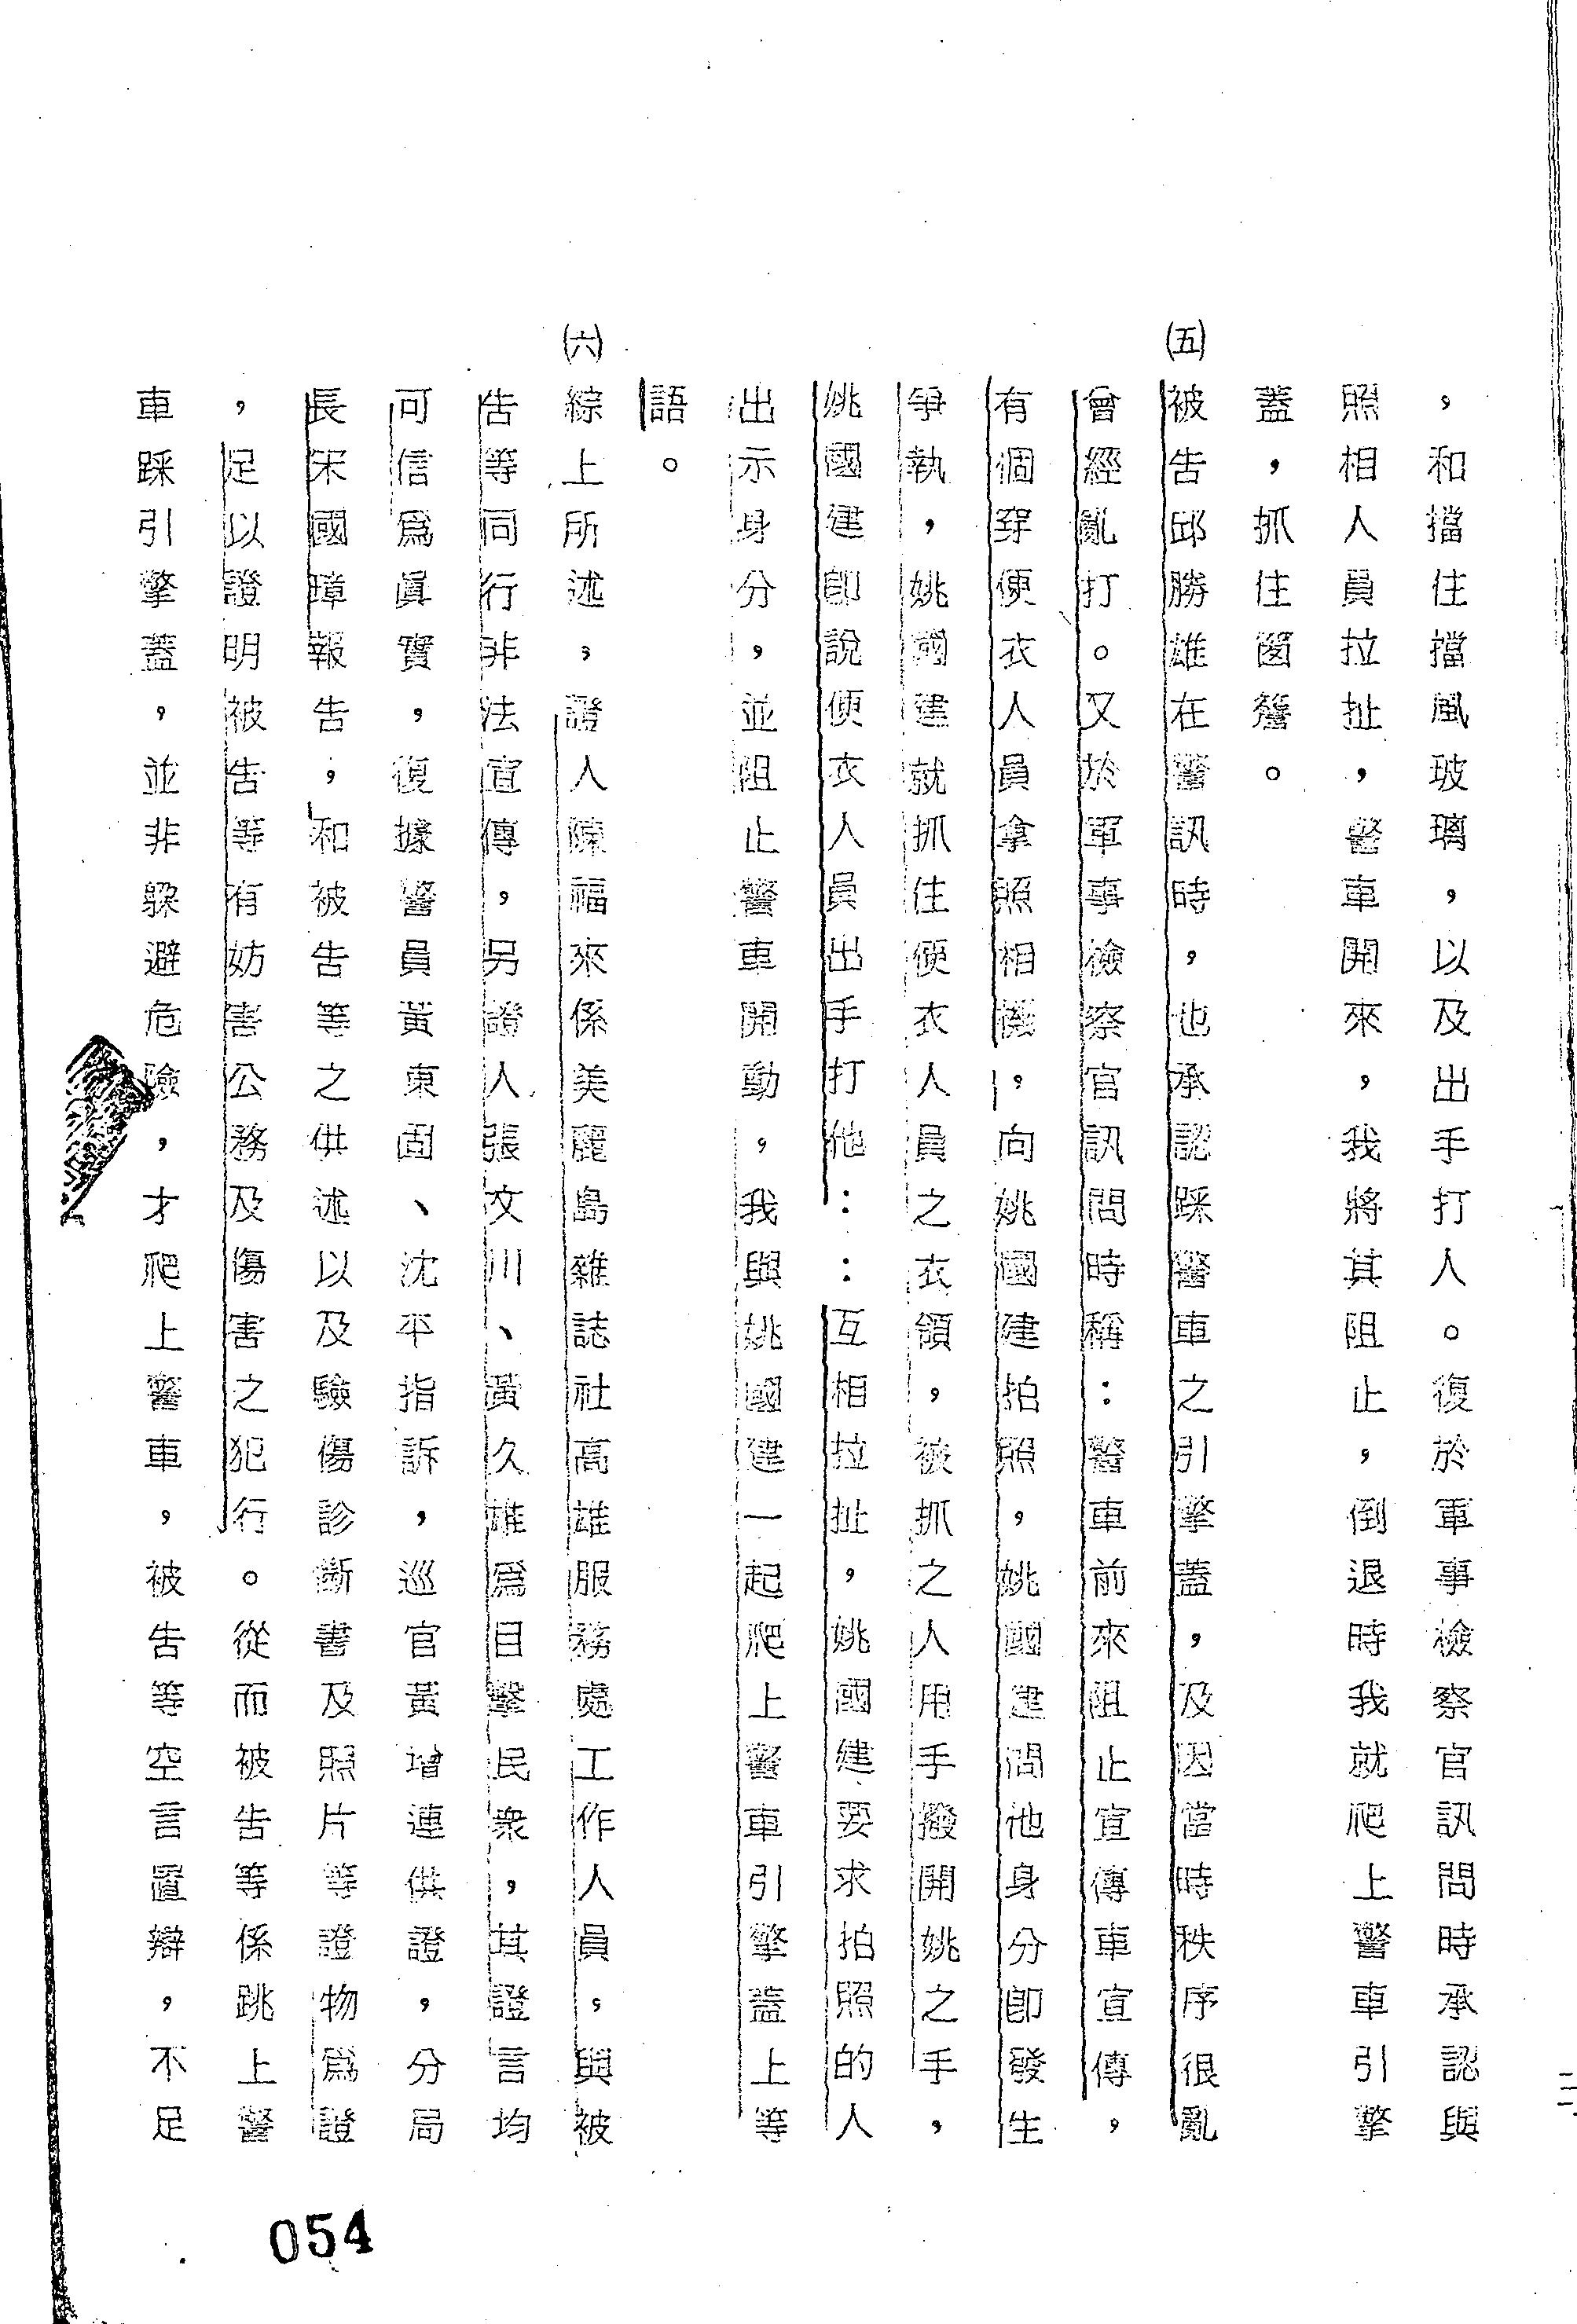 ，和擋住擋風玻璃，以及出手打人。復於軍事檢察官訊問時承認與
照相人員拉扯，警車開來，我將其阻止，倒退時我就爬上警車引擎
蓋，抓住窗簷。
㈤被告邱勝雄在警訊時，也承認踩警車之引擎蓋，及因當時秩序很亂
曾經亂打。又於軍事檢察官訊問時稱：警車前來阻止宣傳車宣傳，
有個穿便衣人員拿照相機，向姚國建拍照，姚國建問他身分卽發生
爭執，姚國建就抓住便衣人員之衣領，被抓之人用手撥開姚之手，
姚國建卽說便衣人員出手打他：：互相拉扯，姚國建要求拍照的人
出示身分，並阻止警車開動，我與姚國建一起爬上警車引擎蓋上等
語。
㈥綜上所述，證人陳福來係美麗島雜誌社高雄服務處工作人員，與被
告等同行非法宣傳，另證人張文川、黃久雄爲目擊民衆，其證言均
可信爲眞實，復據警員黃東固、沈平指訴，巡官黃增連供證，分局
長宋國璋報告，和被告等之供述以及驗傷診斷書及照片等證物爲證
，足以證明被告等有妨害公務及傷害之犯行。從而被告等係跳上警
車踩引擎蓋，並非躱避危險，才爬上警車，被告等空言置辯，不足
二
054